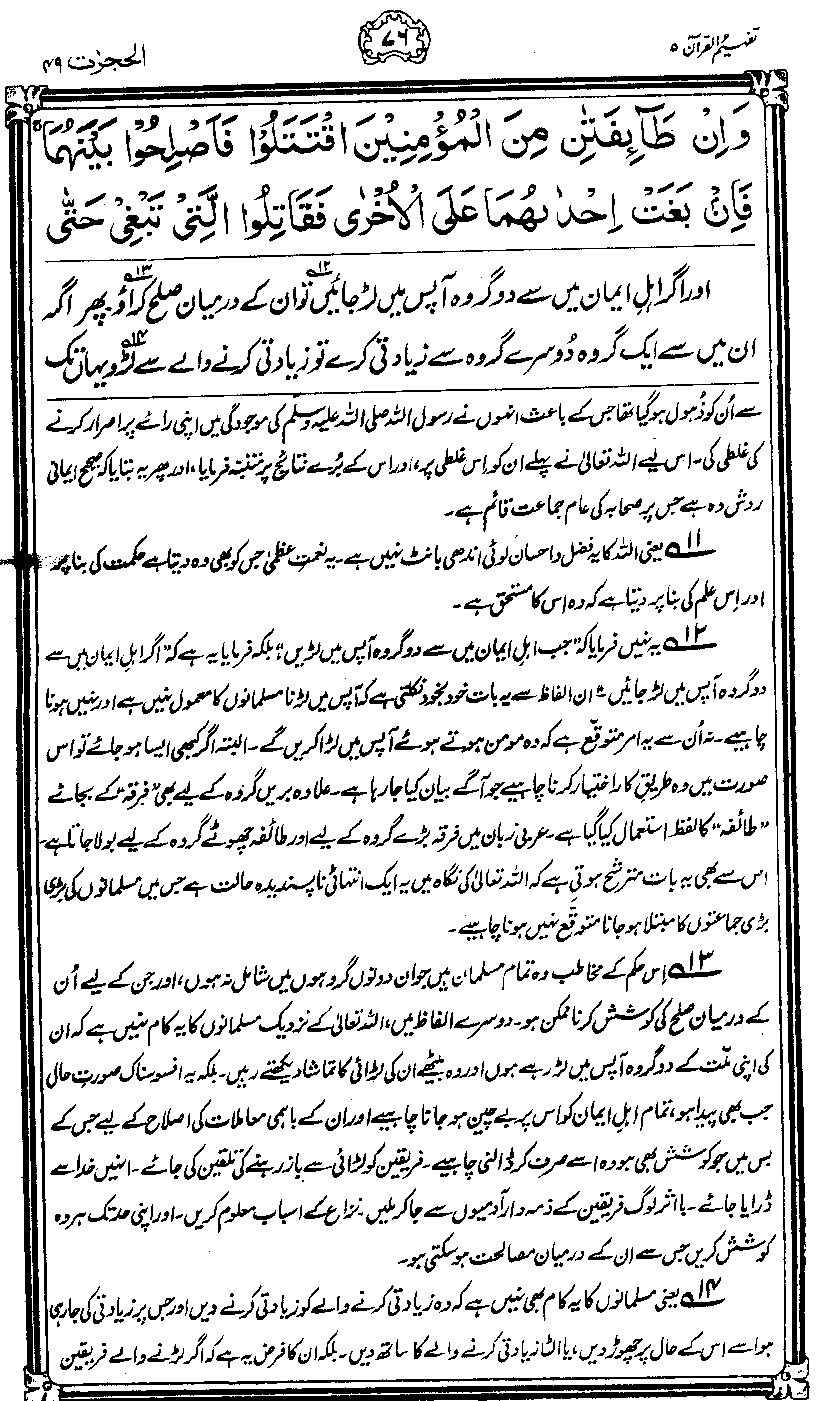 تفہیم القرآن ۵
۷۶
الحجرٰت ۴۹
وَاِنْ طَآئِفَتٰنِ مِنَ الْمُؤْمِنِيْنَ اقْتَتَلُوْا فَاَصْلِحُوْا بَيْنَهُمَا
فَاِنْۢ بَغَتْ اِحْدٰىهُمَا عَلَى الْاُخْرٰى فَقَاتِلُوا الَّتِيْ تَبْغِيْ حَتّٰى
اور اگر اہلِ ایمان میں سے دو گروہ آپس میں لڑ جائیں۱۲ تو ان کے درمیان صلح کراؤ۱۳ پھر اگر
ان میں سے ایک گروہ دُوسرے گروہ سے زیادتی کرے تو زیادتی کرنے والے سے لڑو۱۴ یہاں تک
سے اُن کو ذُہول ہو گیا تھا جس کے باعث انہوں نے رسول اللہ صلی اللہ علیہ وسلم کی موجودگی میں اپنی رائے پر اصرار کرنے
کی غلطی کی۔ اس لیے اللہ تعالیٰ نے پہلے ان کو اِس غلطی پر، اور اس کے بُرے نتائج پر متنبّہ فرمایا، اور پھر یہ بتایا کہ صحیح ایمانی
روش وہ ہے جس پر صحابہ کی عام جماعت قائم ہے۔
۱۱ یعنی اللہ کا یہ فضل و احسان کوئی اندھی بانٹ نہیں ہے۔ یہ نعمتِ عظمٰی جس کو بھی وہ دیتا ہے حکمت کی بنا پر
اور اِس علم کی بنا پر دیتا ہے کہ وہ اس کا مستحق ہے۔
۱۲ یہ نہیں فرمایا کہ ”جب اہلِ ایمان میں سے دو گروہ آپس میں لڑیں“، بلکہ فرمایا یہ ہے کہ ”اگر اہلِ ایمان میں سے
دو گروہ آپس میں لڑ جائیں“۔ ان الفاظ سے یہ بات خود بخود نکلتی ہے کہ آپس میں لڑنا مسلمانوں کا معمول نہیں ہے اور نہیں ہونا
چاہیے۔ نہ اُن سے یہ امر متوقّع ہے کہ وہ مومن ہوتے ہوئے آپس میں لڑا کریں گے۔ البتہ اگر کبھی ایسا ہو جائے تو اس
صورت میں وہ طریقِ کار اختیار کرنا چاہیے جو آگے بیان کیا جا رہا ہے۔ علاوہ بریں گروہ کے لیے بھی ”فرقہ“ کے بجائے
”طائفہ“ کا لفظ استعمال کیا گیا ہے۔ عربی زبان میں فرقہ بڑے گروہ کے لیے اور طائفہ چھوٹے گروہ کے لیے بولا جاتا ہے۔
اس سے بھی یہ بات مترشح ہوتی ہے کہ اللہ تعالیٰ کی نگاہ میں یہ ایک انتہائی ناپسندیدہ حالت ہے جس میں مسلمانوں کی بڑی
بڑی جماعتوں کا مبتلا ہو جانا متوقّع نہیں ہونا چاہیے۔
۱۳ اِس حکم کے مخاطب وہ تمام مسلمان ہیں جو ان دونوں گروہوں میں شامل نہ ہوں، اور جن کے لیے اُن
کے درمیان صلح کی کوشش کرنا ممکن ہو۔ دوسرے الفاظ میں، اللہ تعالیٰ کے نزدیک مسلمانوں کا یہ کام نہیں ہے کہ ان
کی اپنی ملّت کے دو گروہ آپس میں لڑ رہے ہوں اور وہ بیٹھے ان کی لڑائی کا تماشا دیکھتے رہیں۔ بلکہ یہ افسوسناک صورتِ حال
جب بھی پیدا ہو، تمام اہلِ ایمان کو اس پر بے چین ہو جانا چاہیے اور ان کے باہمی معاملات کی اصلاح کے لیے جس کے
بس میں جو کوشش بھی ہو وہ اسے صرف کر ڈالنی چاہیے۔ فریقین کو لڑائی سے باز رہنے کی تلقین کی جائے۔ انہیں خدا سے
ڈرایا جائے۔ بااثر لوگ فریقین کے ذمہ دار آدمیوں سے جا کر ملیں۔ نزاع کے اسباب معلوم کریں۔ اور اپنی حد تک ہر وہ
کوشش کریں جس سے ان کے درمیان مصالحت ہو سکتی ہو۔
۱۴ یعنی مسلمانوں کا یہ کام بھی نہیں ہے کہ وہ زیادتی کرنے والے کو زیادتی کرنے دیں اور جس پر زیادتی کی جا رہی
ہو اسے اس کے حال پر چھوڑ دیں، یا الٹا زیادتی کرنے والے کا ساتھ دیں۔ بلکہ ان کا فرض یہ ہے کہ اگر لڑنے والے فریقین